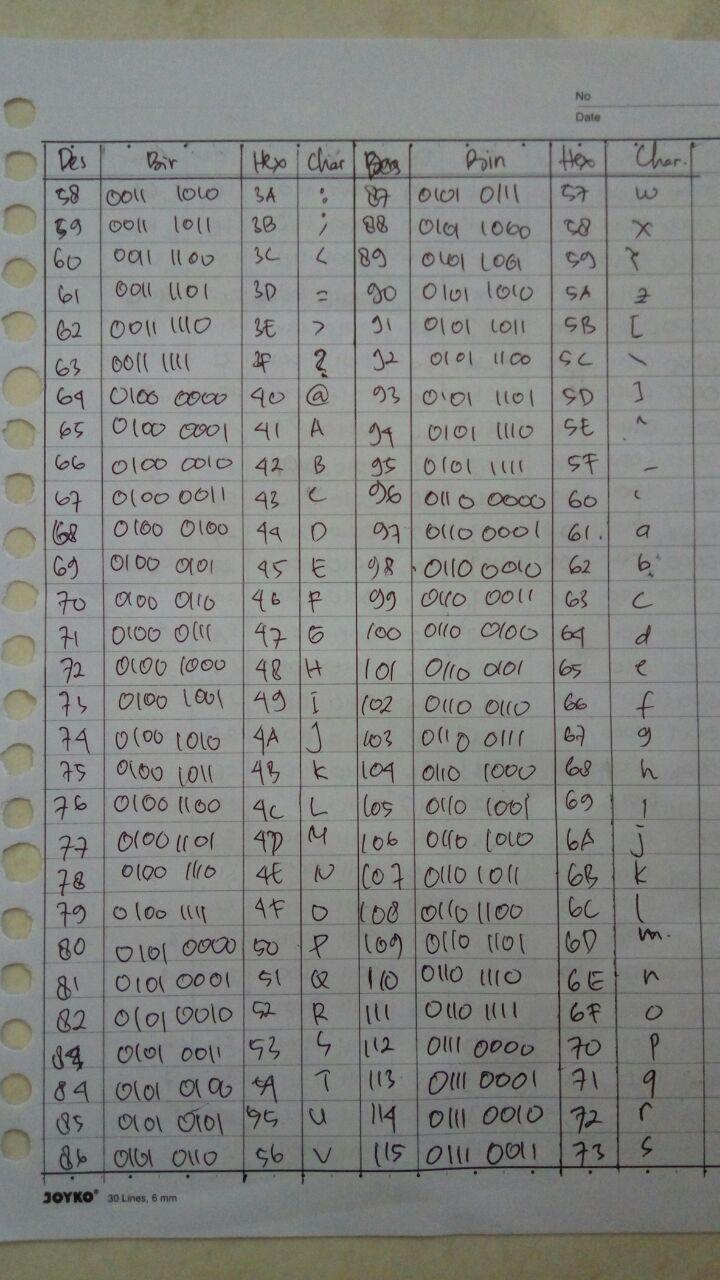 No
Date
Des Bir Hex Char Des Bin Hex Char.
58 0011 1010 3A : 87 0101 0111 57 W
59 0011 1011 3B ; 88 0101 1000 58 X
60 0011 1100 3C < 89 0101 1001 59
61 0011 1101 3D = 90 0101 1010 5A Z
62 0011 1110 3E > 91 0101 1011 5B [
63 0011 1111 3F ? 92 0101 1100 5C \
64 0100 0000 40 @ 93 0101 1101 5D ]
65 0100 0001 41 A 94 0101 1110 5E ^
66 0100 0010 42 B 95 0101 1111 5F _
67 0100 0011 43 C 96 0110 0000 60 ‘
68 0100 0100 44 D 97 0110 0001 61. a
69 0100 0101 45 E 98 0110 0010 62 b
70 0100 0110 46 F 99 0110 0011 63 c
71 0100 0111 47 G 100 0110 0100 64 d
72 0100 1000 48 H 101 0110 0101 65 e
73 0100 1001 49 I 102 0110 0110 66 f
74 0100 1010 4A J 103 0110 0111 67 g
75 0100 1011 4B K 104 0110 1000 68 h
76 0100 1100 4C L 105 0110 1001 69 i
77 0100 1101 4D M 106 0110 1010 6A j
78 0100 1110 4E N 107 0110 1011 6B k
79 0100 1111 4F O 108 0110 1100 6C l
80 0101 0000 50 P 109 0110 1101 6D m.
81 0101 0001 51 Q 110 0110 1110 6E n
82 0101 0010 52 R 111 0110 1111 6F o
83 0101 0011 53 S 112 0111 0000 70 p
84 0101 0100 54 T 113 0111 0001 71 q
85 0101 0101 55 U 114 0111 0010 72 r
86 0101 0110 56 V 115 0111 0011 73 s
JOYKO® 30 Lines, 6 mm